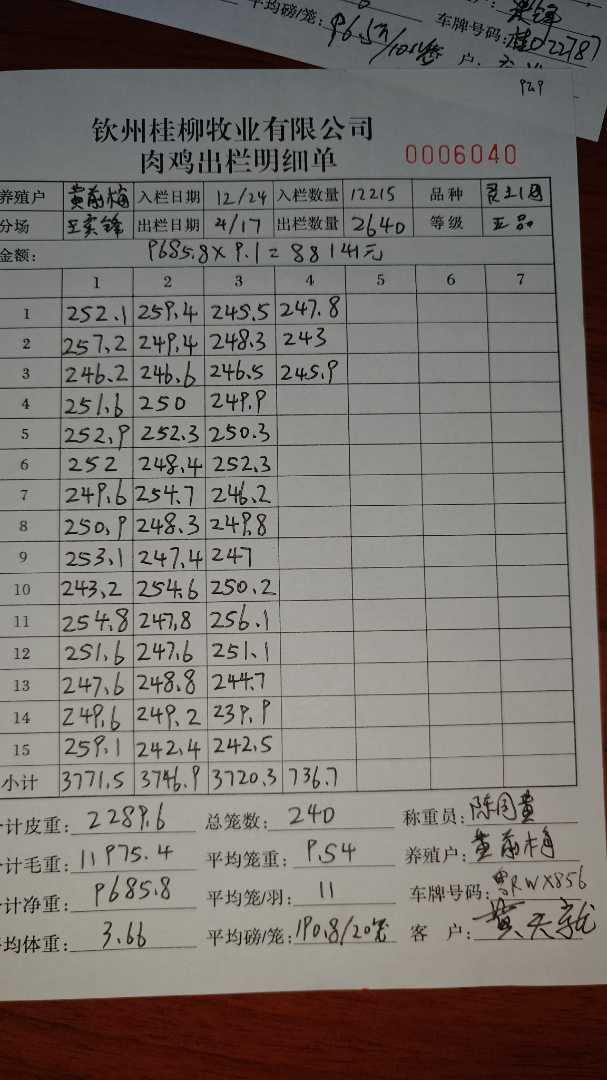 平均磅/笼: 96.5 车牌号码:
929
钦州桂柳牧业有限公司
肉鸡出栏明细单 0006040
养殖户 黄前梅 入栏日期 12/24 入栏数量 12215 品种
分场 出栏日期 4/17 出栏数量 2640 等级 正品
金额: 9685.8×9.1=88141元
1 2 3 4 5 6 7
1 252.1 259.4 245.5 247.8
2 257.2 249.4 248.3 243
3 246.2 246.6 246.5 245.9
4 251.6 250 249.9
5 252.9 252.3 250.3
6 252 248.4 252.3
7 249.6 254.7 246.2
8 250.9 248.3 249.8
9 253.1 247.4 247
10 243.2 254.6 250.2
11 254.8 247.8 256.1
12 251.6 247.6 251.1
13 247.6 248.8 244.7
14 249.6 249.2 239.9
15 259.1 242.4 242.5
小计 3771.5 3746.9 3720.3 736.7
计皮重: 2289.6 总笼数: 240 称重员: 陈国贵
计毛重: 11975.4 平均笼重: 9.54 养殖户: 黄前梅
计净重: 9685.8 平均笼/羽: 11 车牌号码: 粤RWX856
均体重: 3.66 平均磅/笼: 190.8/20笼 客 户: